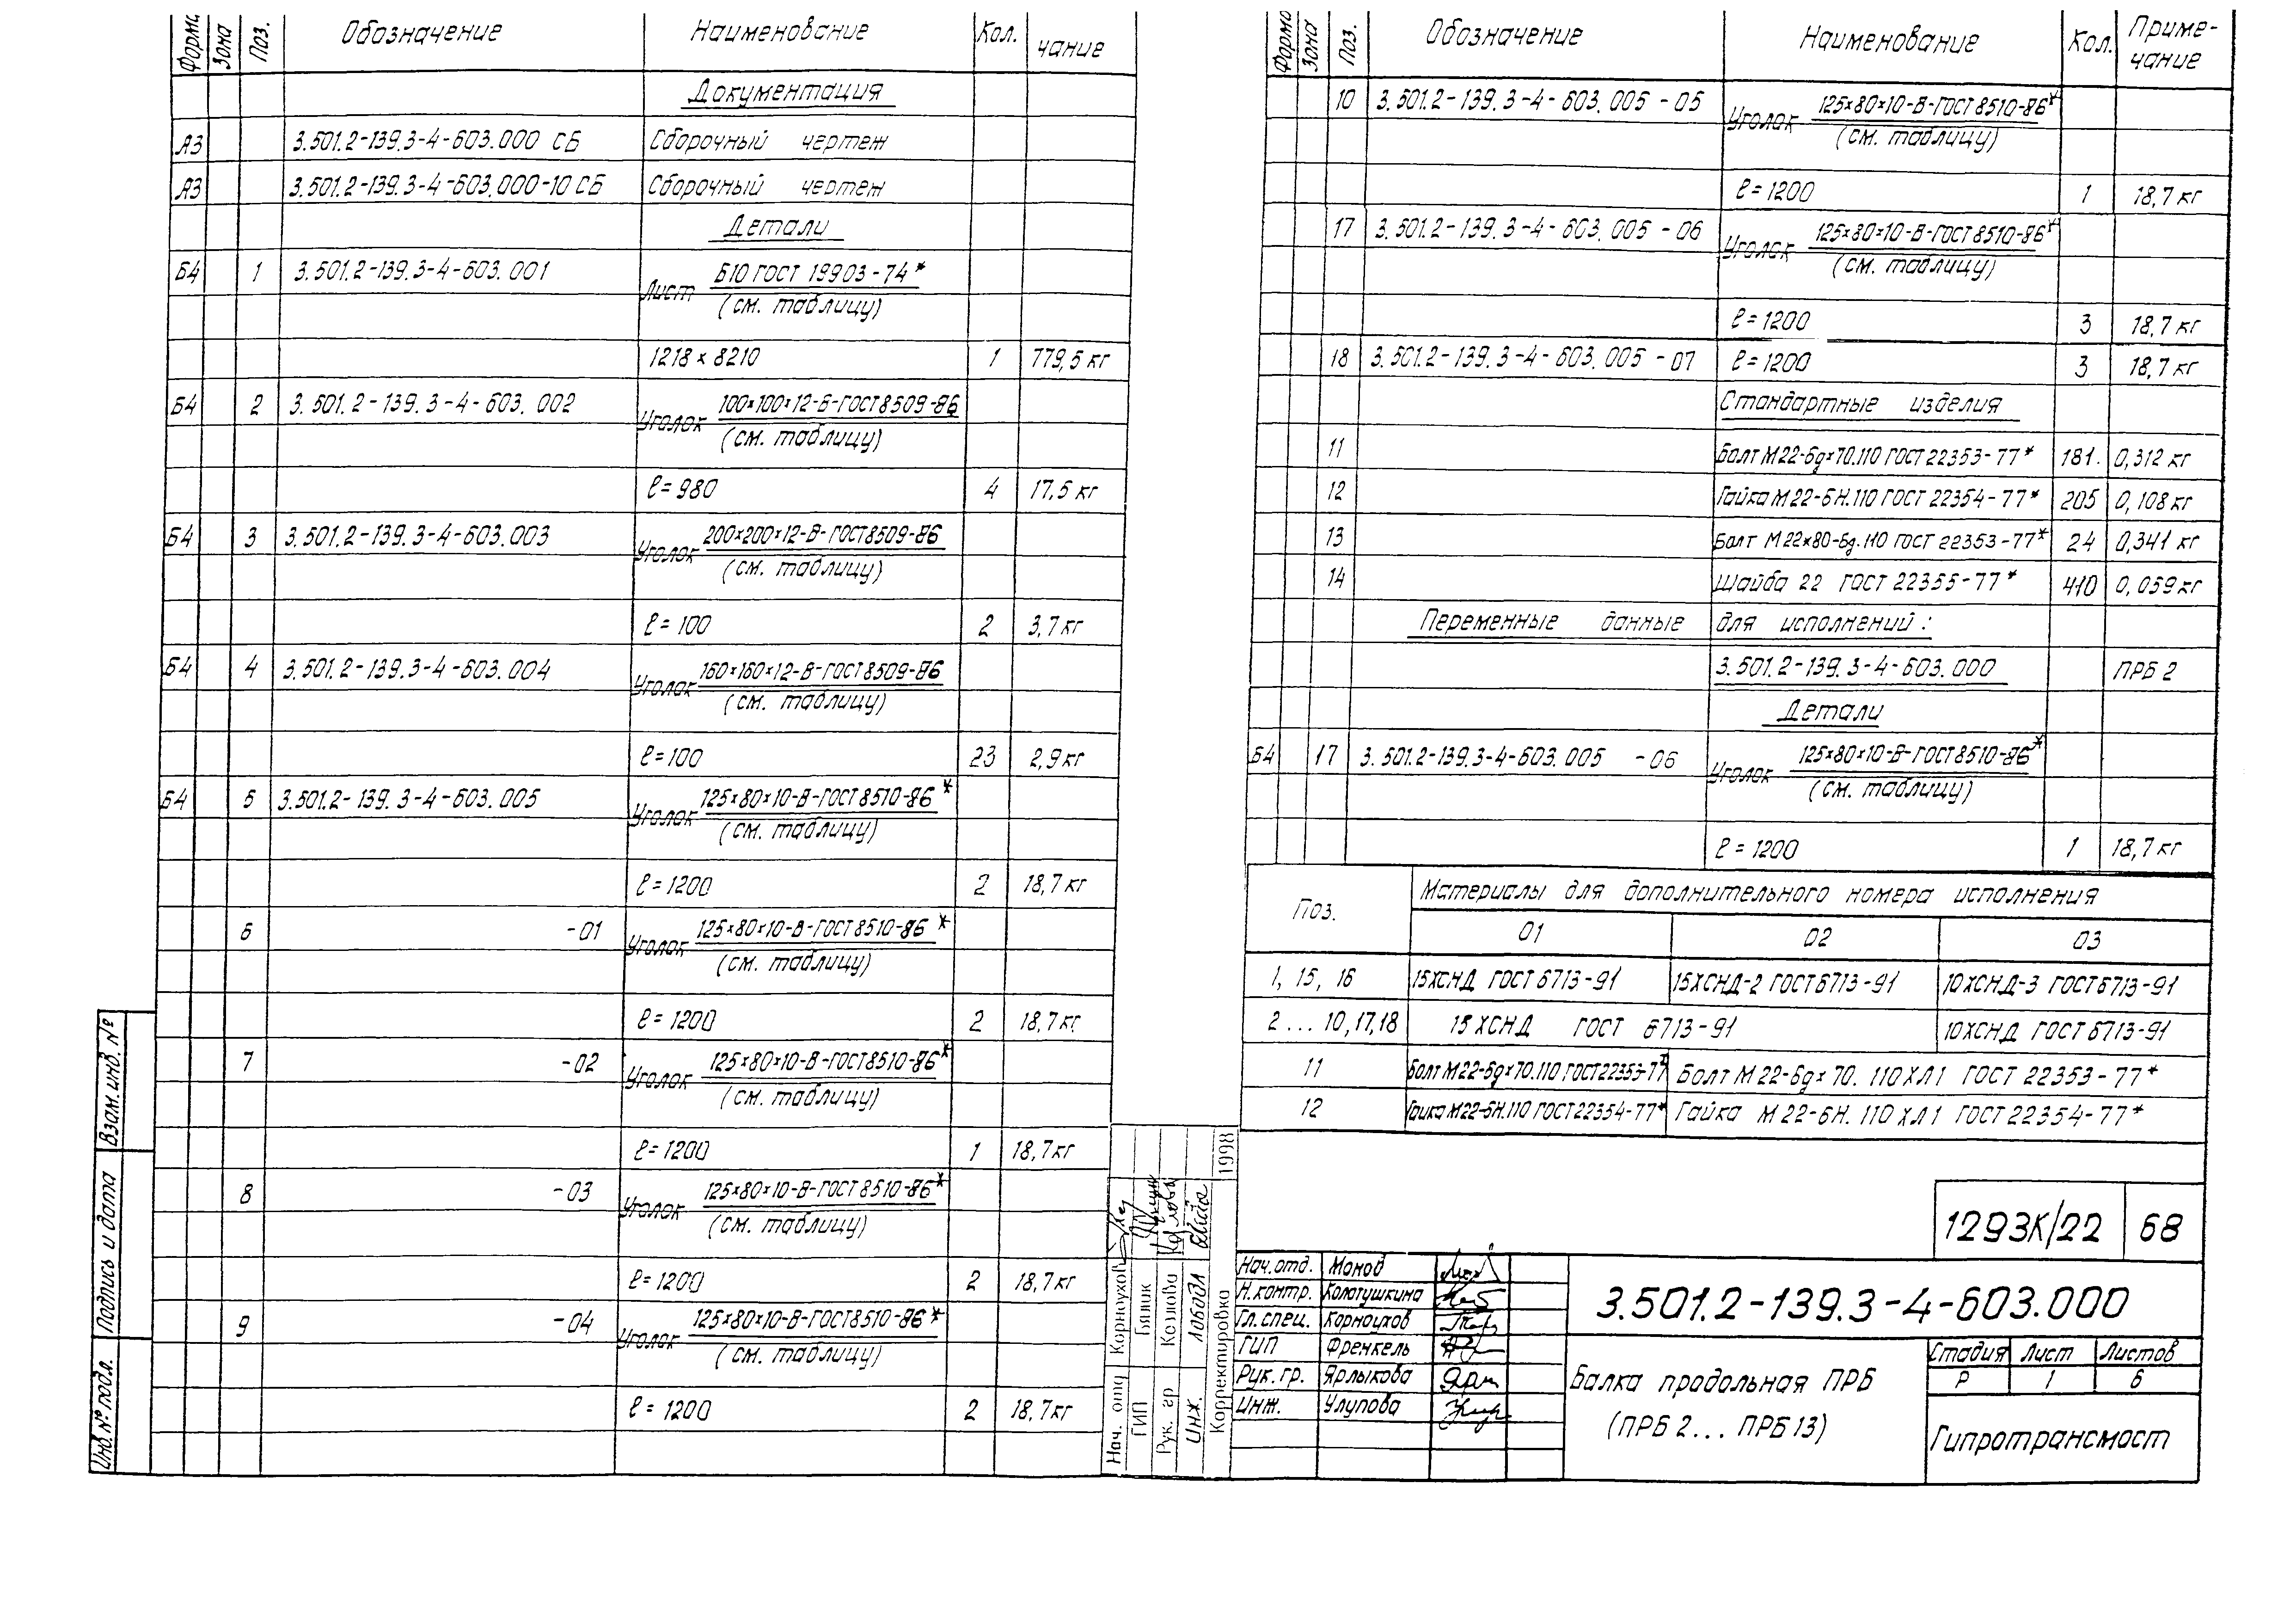 Форма Зона Поз. Обозначение Наименование Кол. чание
Документация
А3 3.501.2-139.3-4-603.000 СБ Сборочный чертеж
А3 3.501.2-139.3-4-603.000-10 СБ Сборочный чертеж
Детали
Б4 1 3.501.2-139.3-4-603.001 Лист Б10 ГОСТ 19903-74*
(см. таблицу)
1218 × 8210 1 779,5 кг
Б4 2 3.501.2-139.3-4-603.002 Уголок 100×100×12-В-ГОСТ 8509-86
(см. таблицу)
ℓ=980 4 17,5 кг
Б4 3 3.501.2-139.3-4-603.003 Уголок 200×200×12-В-ГОСТ 8509-86
(см. таблицу)
ℓ=100 2 3,7 кг
Б4 4 3.501.2-139.3-4-603.004 Уголок 160×160×12-В-ГОСТ 8509-86
(см. таблицу)
ℓ=100 23 2,9 кг
Б4 5 3.501.2-139.3-4-603.005 Уголок 125×80×10-В-ГОСТ 8510-86*
(см. таблицу)
ℓ=1200 2 18,7 кг
6 -01 Уголок 125×80×10-В-ГОСТ 8510-86*
(см. таблицу)
ℓ=1200 2 18,7 кг
7 -02 Уголок 125×80×10-В-ГОСТ 8510-86*
(см. таблицу)
ℓ=1200 1 18,7 кг
8 -03 Уголок 125×80×10-В-ГОСТ 8510-86*
(см. таблицу)
ℓ=1200 2 18,7 кг
9 -04 Уголок 125×80×10-В-ГОСТ 8510-86*
(см. таблицу)
ℓ=1200 2 18,7 кг
Взам. инв. №
Подпись и дата
Инв. № подл.
Форма Зона Поз. Обозначение Наименование Кол. Приме-
чание
10 3.501.2-139.3-4-603.005-05 Уголок 125×80×10-В-ГОСТ 8510-86*
(см. таблицу)
ℓ=1200 1 18,7 кг
17 3.501.2-139.3-4-603.005-06 Уголок 125×80×10-В-ГОСТ 8510-86*
(см. таблицу)
ℓ=1200 3 18,7 кг
18 3.501.2-139.3-4-603.005-07 ℓ=1200 3 18,7 кг
Стандартные изделия
11 Болт М22-6g×70.110 ГОСТ 22353-77* 181. 0,312 кг
12 Гайка М22-6Н.110 ГОСТ 22354-77* 205 0,108 кг
13 Болт М22×80-6g.110 ГОСТ 22353-77* 24 0,341 кг
14 Шайба 22 ГОСТ 22355-77* 410 0,059 кг
Переменные данные для исполнений:
3.501.2-139.3-4-603.000 ПРБ 2
Детали
Б4 17 3.501.2-139.3-4-603.005 -06 Уголок 125×80×10-В-ГОСТ 8510-86*
(см. таблицу)
ℓ=1200 1 18,7 кг
Поз. Материалы для дополнительного номера исполнения
01 02 03
1, 15, 16 15ХСНД ГОСТ 6713-91 15ХСНД-2 ГОСТ 6713-91 10ХСНД-3 ГОСТ 6713-91
2...10,17,18 15ХСНД ГОСТ 6713-91 10ХСНД ГОСТ 6713-91
11 Болт М22-6g×70.110 ГОСТ 22353-77* Болт М22-6g×70.110ХЛ1 ГОСТ 22353-77*
12 Гайка М22-6Н.110 ГОСТ 22354-77* Гайка М22-6Н.110ХЛ1 ГОСТ 22354-77*
1293К/22 68
Нач. отд Корноухов
ГИП
Рук. гр Козлова
Инж. Лобода
Корректировка 1998
Нач. отд. Монов
Н. контр. Колотушкина
Гл. спец. Корноухов
ГИП Френкель
Рук. гр. Ярлыкова
Инж. Улупова
3.501.2-139.3-4-603.000
Балка продольная ПРБ
(ПРБ 2... ПРБ 13)
Стадия Лист Листов
Р 1 6
Гипротрансмост